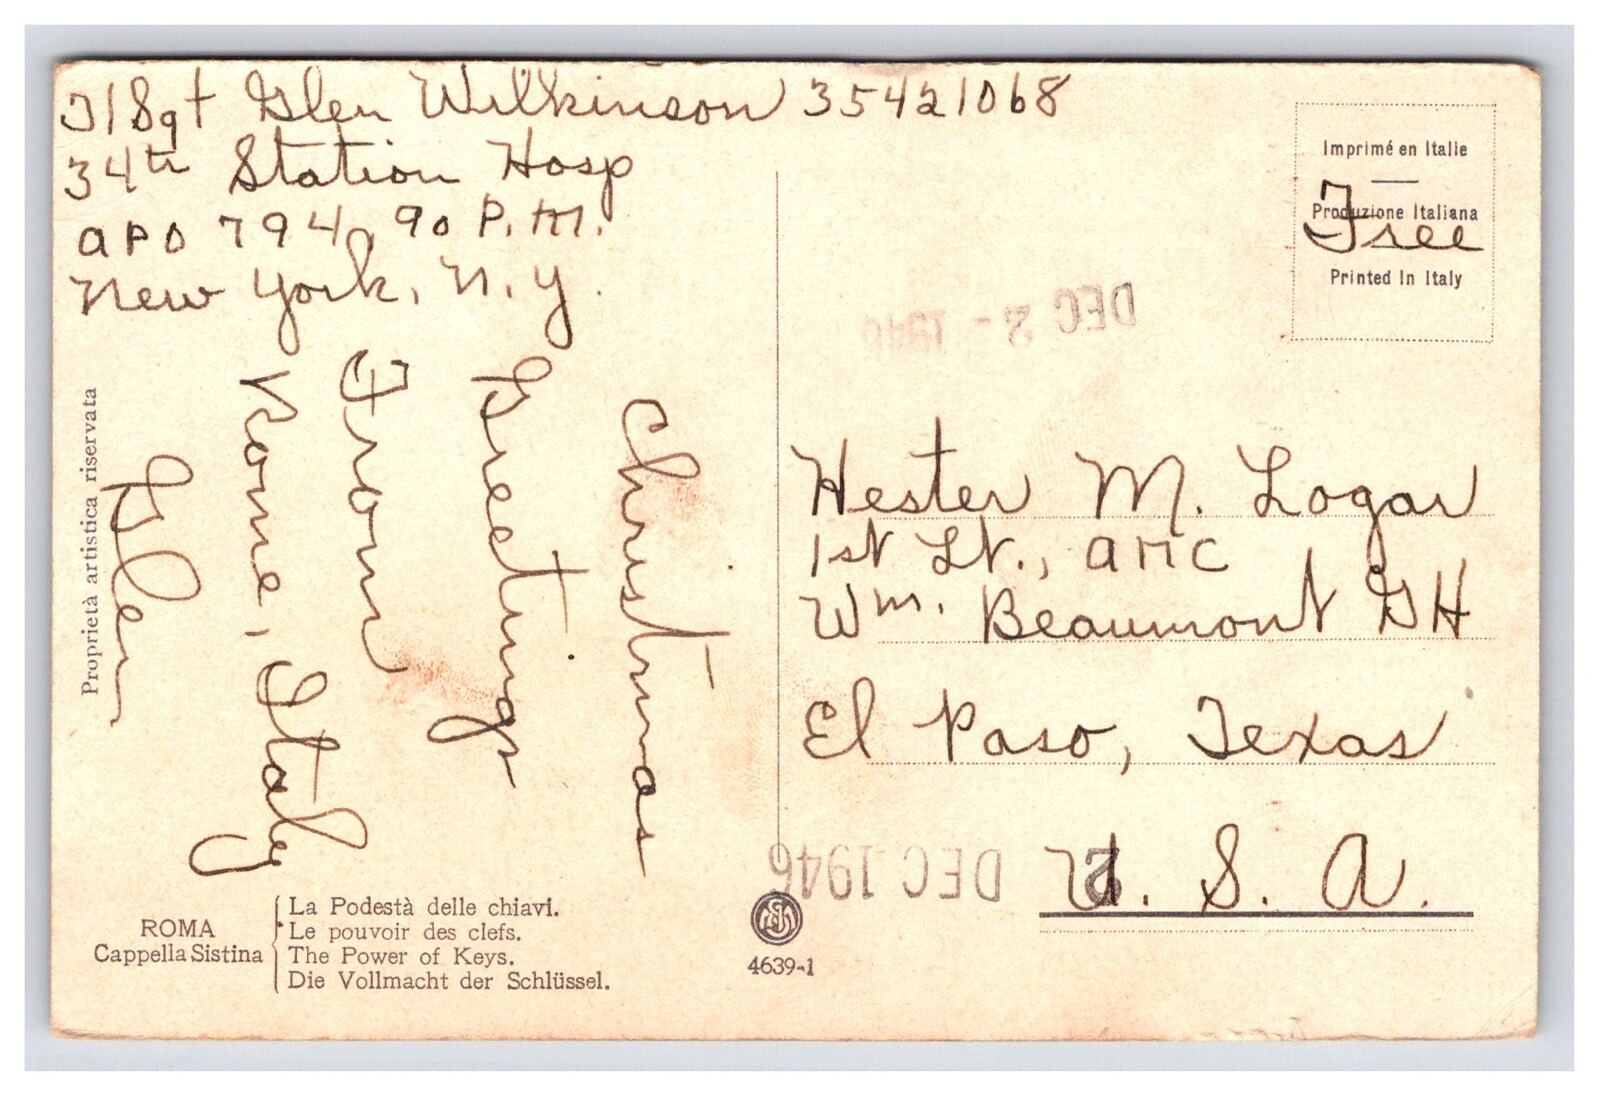 T/Sgt Glen Wilkinson 35421068
34th Station Hosp
APO 794, % P.M.
New York, N.Y.
Christmas
Greetings
From
Rome, Italy
Glen
Proprietà artistica riservata
ROMA
Cappella Sistina
La Podestà delle chiavi.
Le pouvoir des clefs.
The Power of Keys.
Die Vollmacht der Schlüssel.
4639-1
Imprimé en Italie
Produzione Italiana
Free
Printed In Italy
DEC 2 - 1946
Hester M. Logar
1st Lt., ANC
Wm. Beaumont GH
El Paso, Texas
U. S. A.
2 DEC 1946